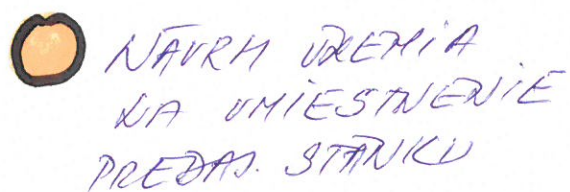 NÁVRH ÚZEMIA
NA UMIESTNENIE
PREDAJ. STÁNKU